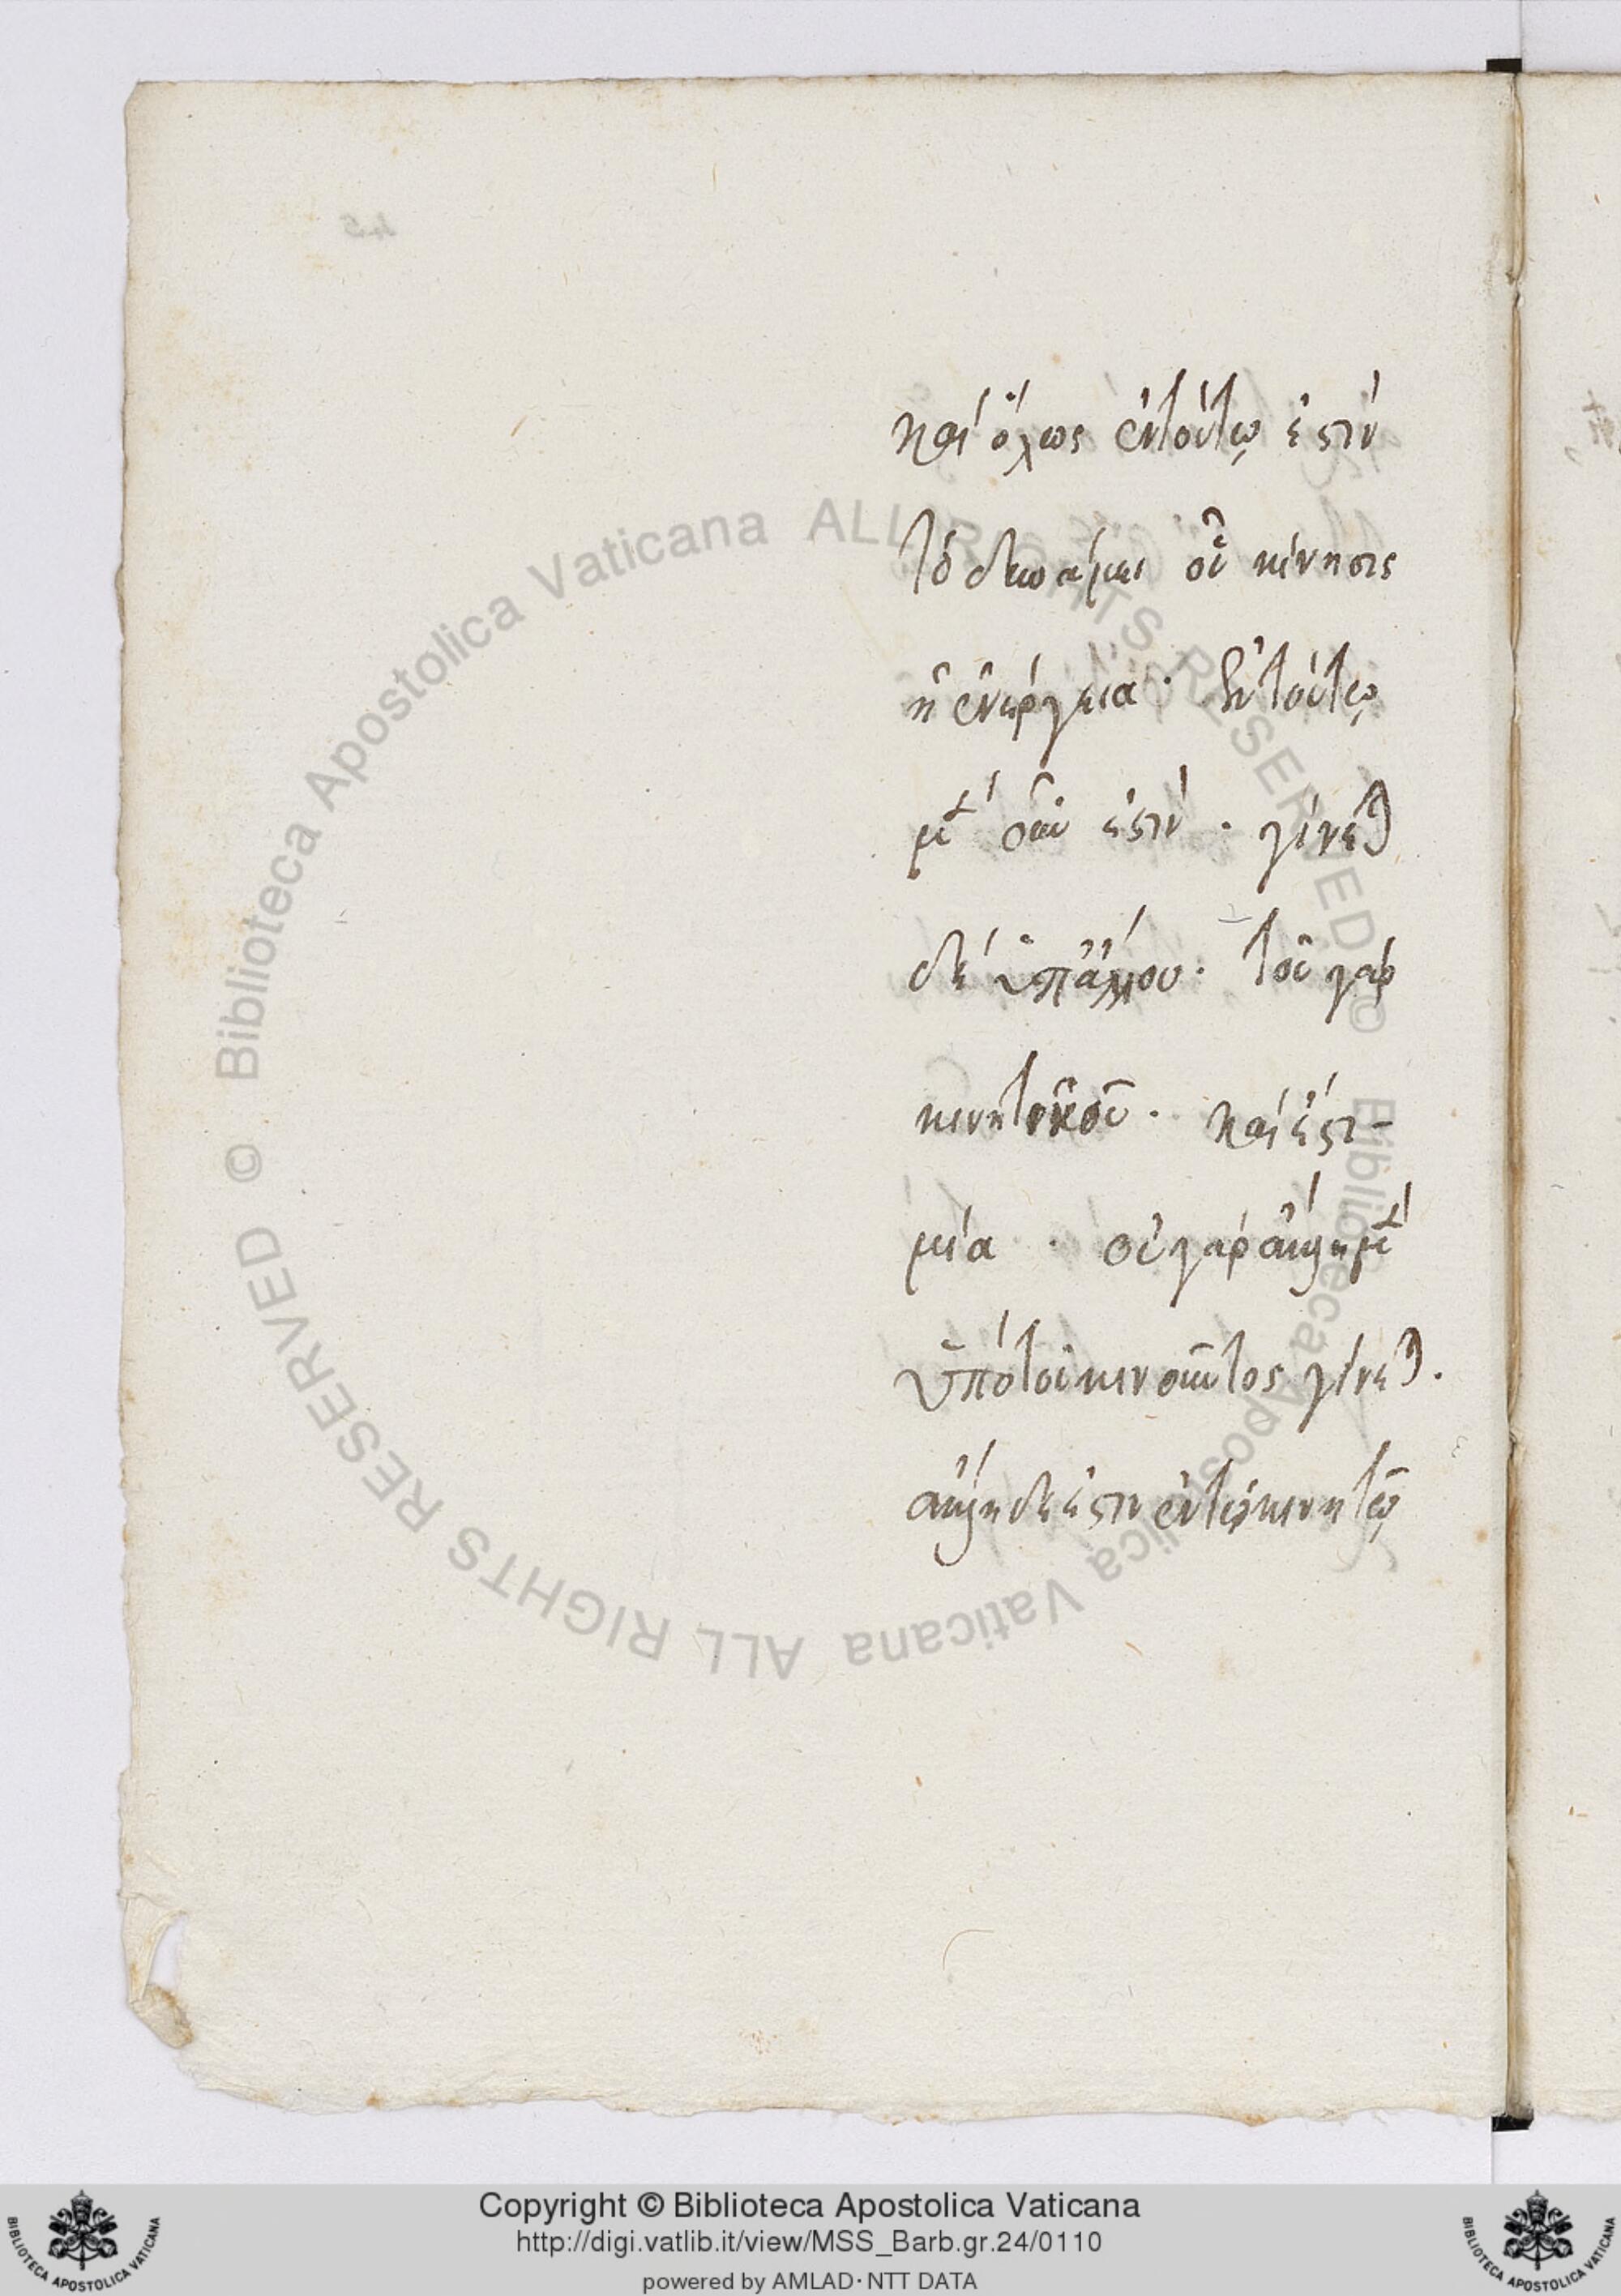 καὶ ὅλως ἐν τούτῳ ἐστὶν
τὸ δυνάμει οὗ κίνησις
ἡ ἐνέργεια · ἐν τούτῳ
μὲν οὖν ἐστὶν · γίνεται
δὲ ὑπ' ἄλλου · τοῦ γὰρ
κινητικοῦ · καὶ ἔστι
μία · οὐ γὰρ αὐτὴ μὲν
ὑπὸ τοῦ κινοῦντος γίνεται .
αὐτὴ δέ ἐστιν ἐν τῷ κινητῷ
© Biblioteca Apostolica Vaticana ALL RIGHTS RESERVED © Biblioteca Apostolica Vaticana ALL RIGHTS RESERVED
Copyright © Biblioteca Apostolica Vaticana
http://digi.vatlib.it/view/MSS_Barb.gr.24/0110
powered by AMLAD·NTT DATA
BIBLIOTECA APOSTOLICA VATICANA
BIBLIOTECA APOSTOLICA VATICANA